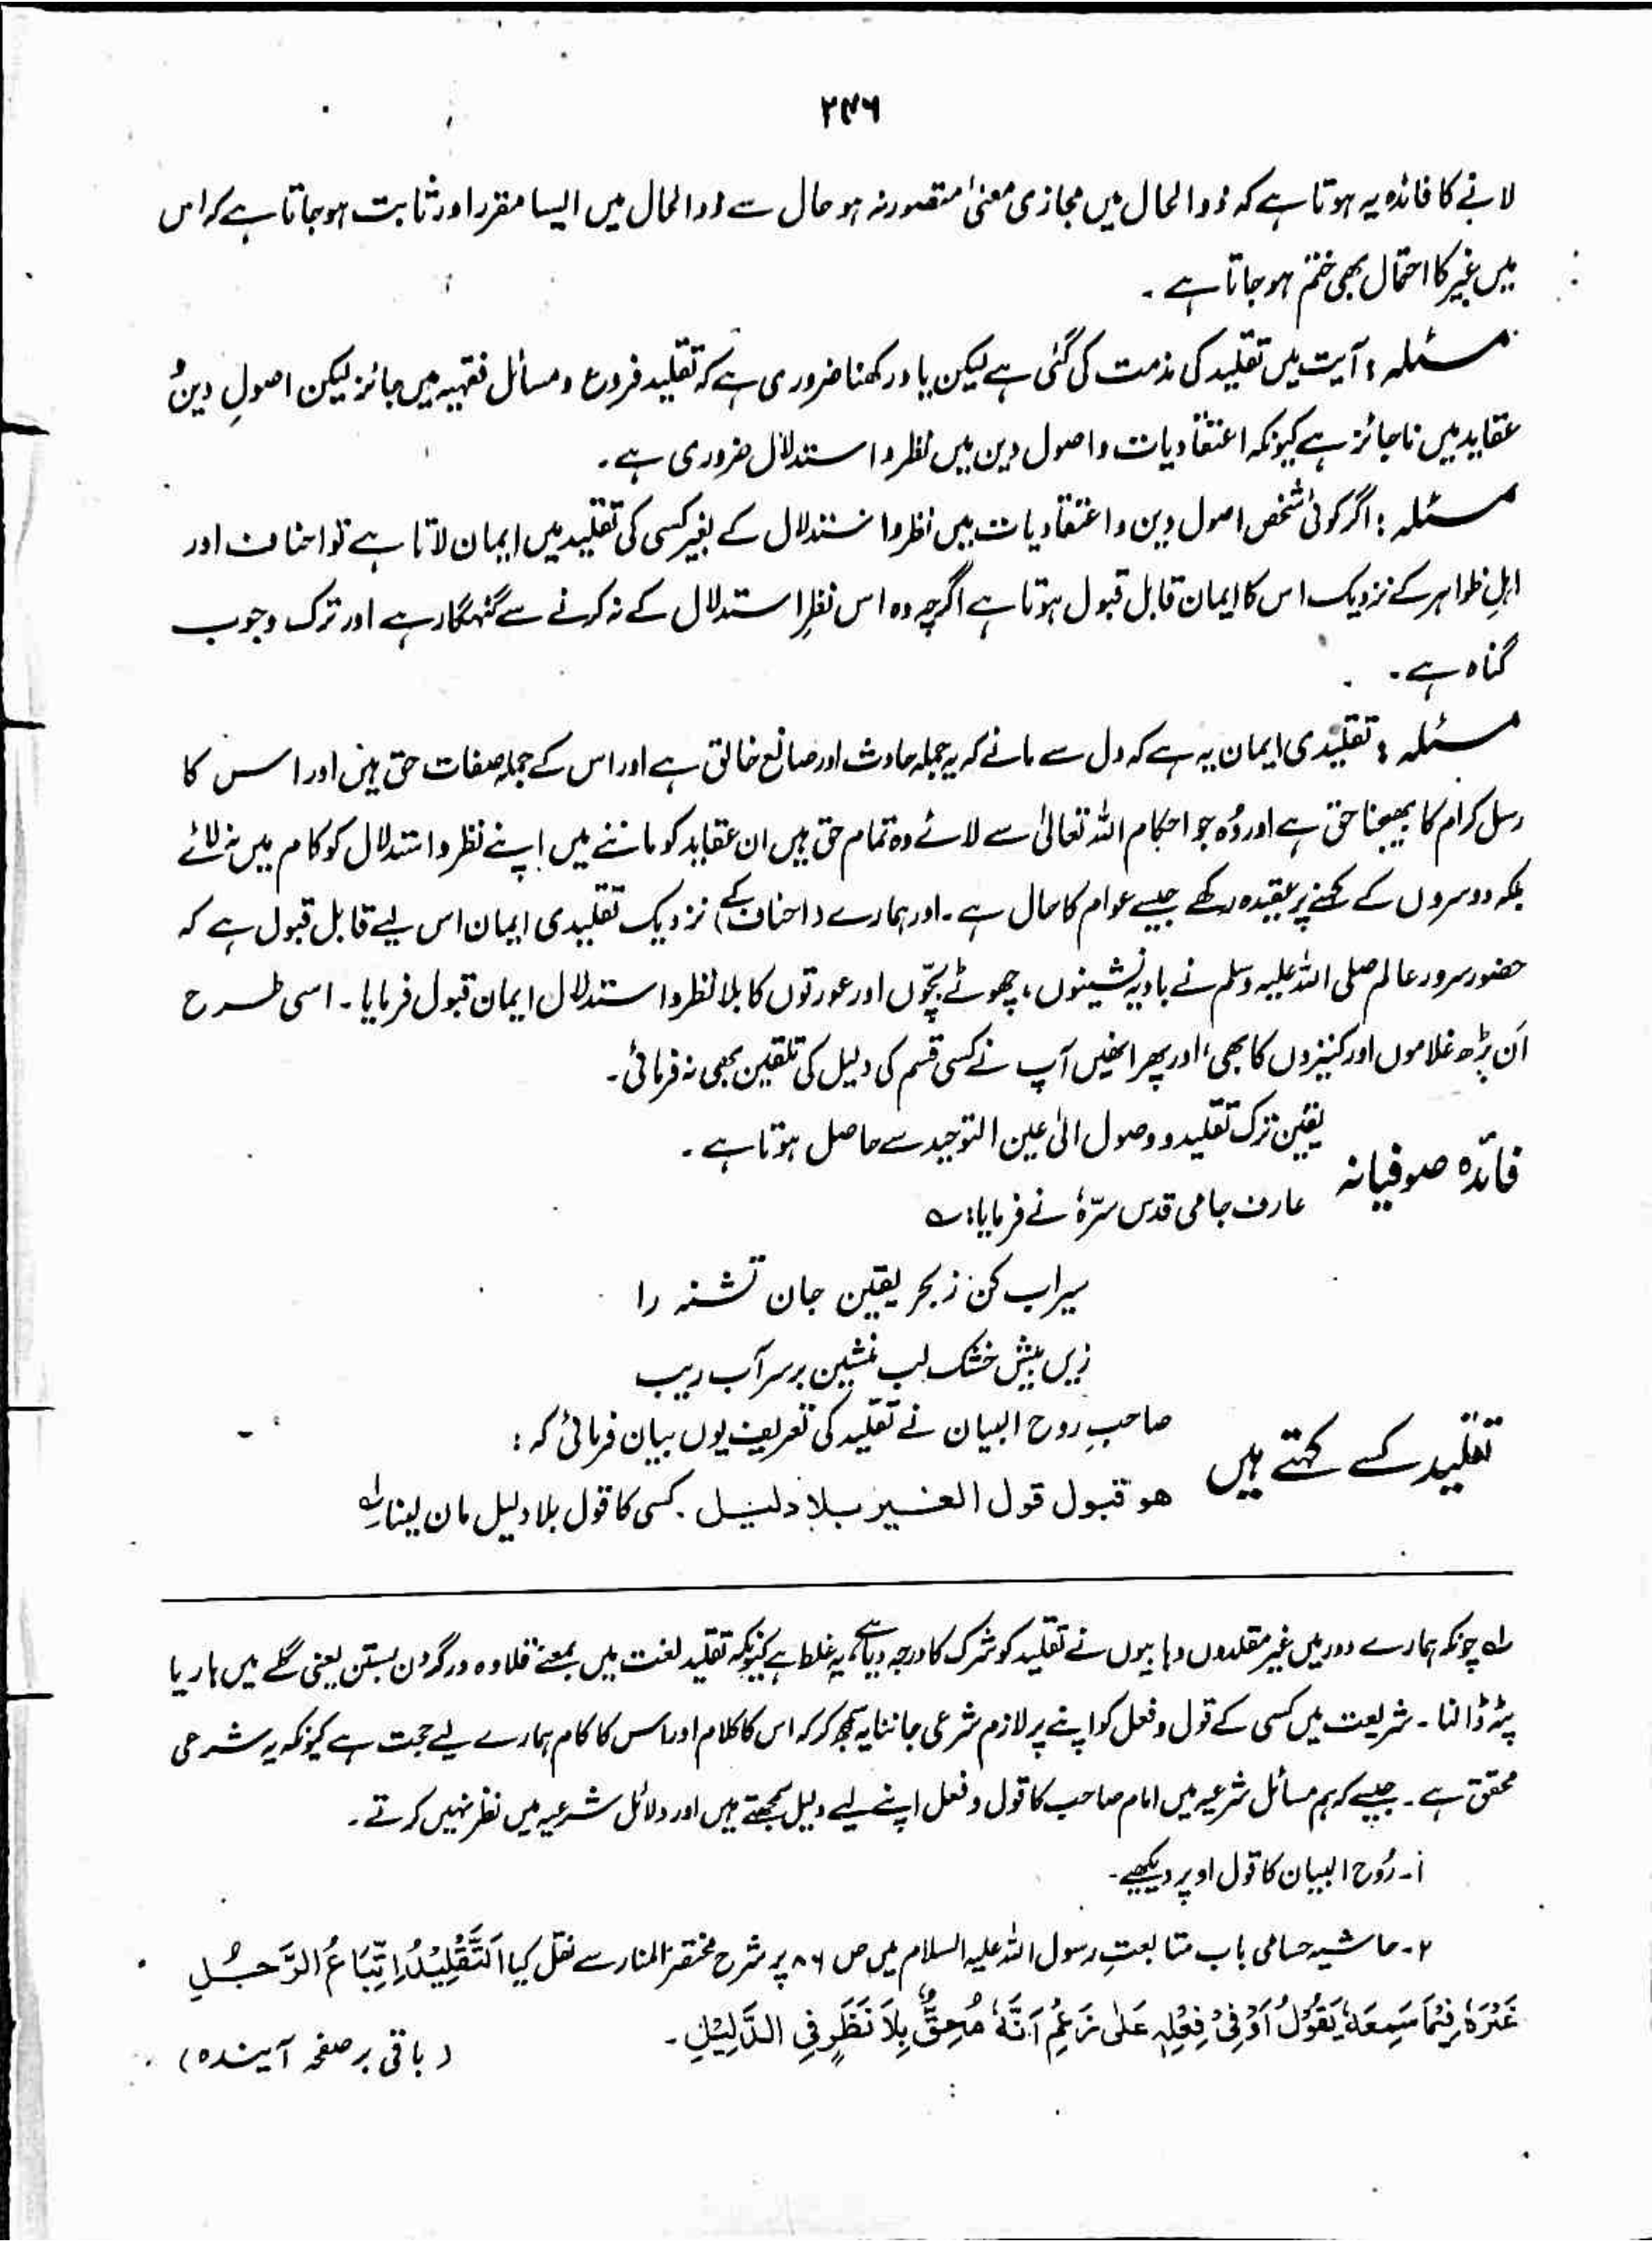 ۲۴۶
لانے کا فائدہ یہ ہوتا ہے کہ ذوالحال میں مجازی معنیٰ مقصود نہ ہو حال سے ذوالحال میں ایسا مقرر اور ثابت ہوجاتا ہے کہ اس
میں غیر کا احتمال بھی ختم ہوجاتا ہے ۔
مسئلہ : آیت میں تقلید کی مذمت کی گئی ہے لیکن یاد رکھنا ضروری ہے کہ تقلید فروع و مسائل فقہیہ میں جائز لیکن اصولِ دین و
عقاید میں ناجائز ہے کیونکہ اعتقادیات و اصول دین میں نظر و استدلال ضروری ہے ۔
مسئلہ : اگر کوئی شخص اصول دین و اعتقادیات میں نظر و استدلال کے بغیر کسی کی تقلید میں ایمان لاتا ہے تو احناف اور
اہلِ ظواہر کے نزدیک اس کا ایمان قابل قبول ہوتا ہے اگرچہ وہ اس نظر استدلال کے نہ کرنے سے گنہگار ہے اور ترک وجوب
گناہ ہے ۔
مسئلہ : تقلیدی ایمان یہ ہے کہ دل سے مانے کہ یہ جملہ حادث اور صانع خالق ہے اور اس کے جملہ صفات حق ہیں اور اس کا
رسل کرام کا بھیجنا حق ہے اور وُہ جو احکام اللہ تعالیٰ سے لائے وہ تمام حق ہیں ان عقاید کو ماننے میں اپنے نظر و استدلال کو کام میں نہ لائے
بلکہ دوسروں کے کہنے پر عقیدہ رکھے جیسے عوام کا حال ہے ۔ اور ہمارے (احناف کے) نزدیک تقلیدی ایمان اس لیے قابل قبول ہے کہ
حضور سرور عالم صلی اللہ علیہ وسلم نے بادیہ نشینوں ، چھوٹے بچّوں اور عورتوں کا بلا نظر و استدلال ایمان قبول فرمایا ۔ اسی طرح
اَن پڑھ غلاموں اور کنیزوں کا بھی ، اور پھر انھیں آپ نے کسی قسم کی دلیل کی تلقین بھی نہ فرمائی ۔
فائدہ صوفیانہ یقین ترک تقلید و وصول الیٰ عین التوحید سے حاصل ہوتا ہے ۔
عارف جامی قدس سرّہٗ نے فرمایا : ؎
سیراب کن ز بحر یقین جان تشنہ را
زیں بیش خشک لب منشین بر سر آب ریب
تقلید کسے کہتے ہیں صاحبِ روح البیان نے تقلید کی تعریف یوں بیان فرمائی کہ :
ھو قبول قول الغیر بلا دلیل ۔ کسی کا قول بلا دلیل مان لینا لہ
لہ چونکہ ہمارے دور میں غیر مقلدوں وہابیوں نے تقلید کو شرک کا درجہ دیا ہے ، یہ غلط ہے کیونکہ تقلید لغت میں بمعنے قلادہ در گردن بستن یعنی گلے میں ہار یا
پٹہ ڈالنا ۔ شریعت میں کسی کے قول و فعل کو اپنے پر لازم شرعی جاننا یہ سمجھ کر کہ اس کا کلام اور اس کا کام ہمارے لیے حجت ہے کیونکہ یہ شرعی
محقق ہے ۔ جیسے کہ ہم مسائل شرعیہ میں امام صاحب کا قول و فعل اپنے لیے دلیل سمجھتے ہیں اور دلائل شرعیہ میں نظر نہیں کرتے ۔
۱۔ رُوح البیان کا قول اوپر دیکھیے ۔
۲۔ حاشیہ حسامی باب متابعتِ رسول اللہ علیہ السلام میں ص ۸۶ پر شرح مختصر المنار سے نقل کیا اَلتَّقْلِیْدُ اِتِّبَاعُ الرَّجُلِ
غَیْرَہٗ فِیْمَا سَمِعَہٗ یَقُوْلُ اَوْ فِیْ فِعْلِہٖ عَلٰی زَعْمِ اَنَّہٗ مُحِقٌّ بِلَا نَظَرٍ فِی الدَّلِیْلِ ۔
(باقی بر صفحہ آیندہ)